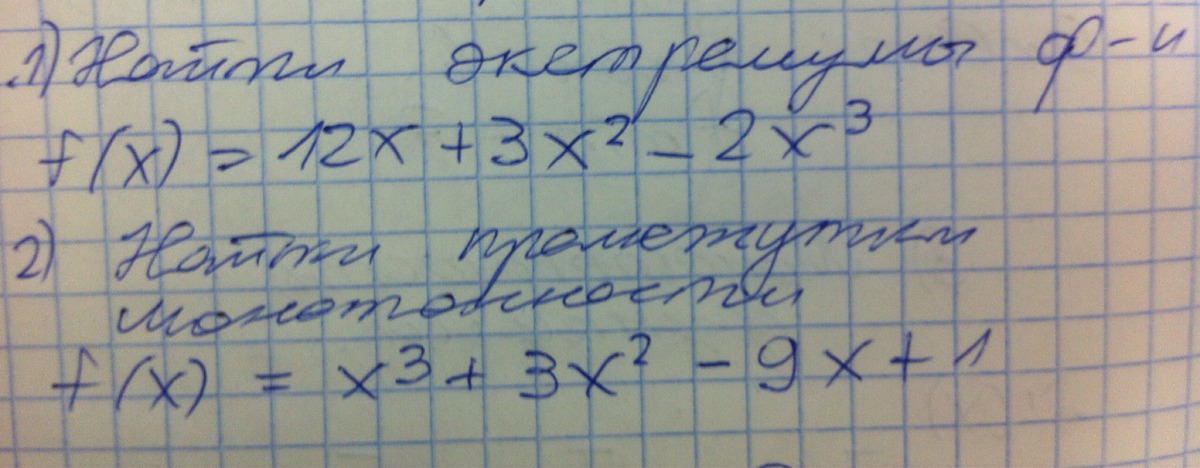 1) Найти экстремумы ф-и
f(x) = 12x + 3x² - 2x³
2) Найти промежутки
монотонности
f(x) = x³ + 3x² - 9x + 1